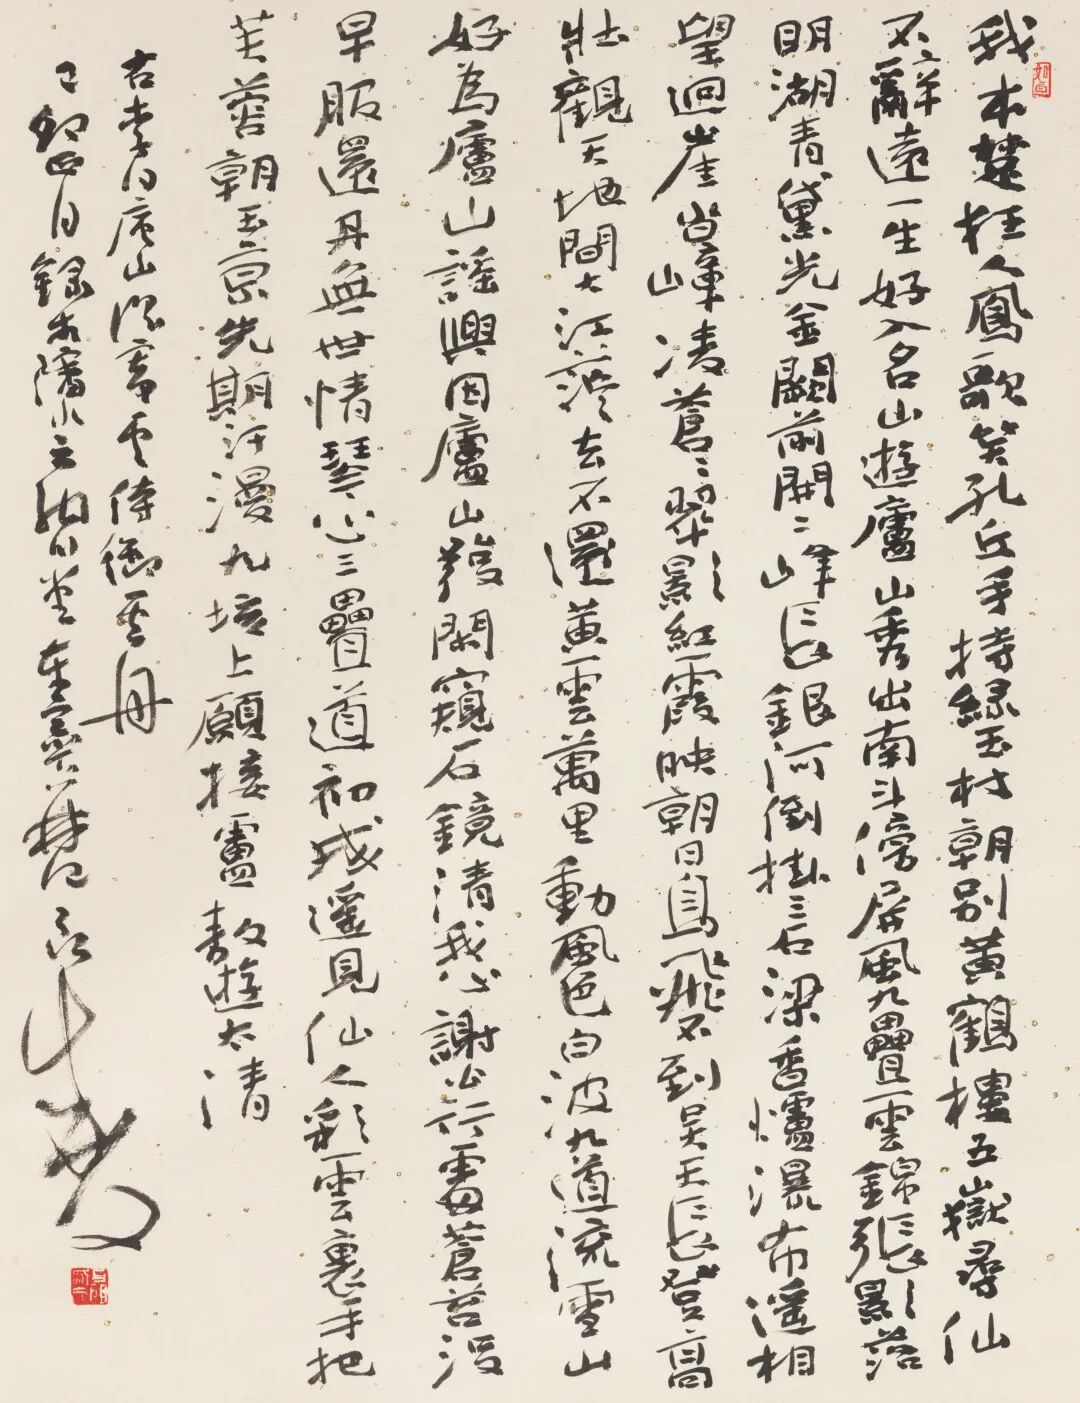 我本楚狂人鳳歌笑孔丘手持綠玉杖朝別黃鶴樓五嶽尋仙
不辭遠一生好入名山遊廬山秀出南斗傍屏風九疊雲錦張影落
明湖青黛光金闕前開二峰長銀河倒掛三石梁香爐瀑布遙相
望迴崖沓嶂凌蒼〻翠影紅霞映朝日鳥飛不到吳天長登高
壯觀天地間大江茫〻去不還黃雲萬里動風色白波九道流雪山
好為廬山謠興因廬山發閑窺石鏡清我心謝公行處蒼苔沒
早服還丹無世情琴心三疊道初成遙見仙人彩雲裏手把
芙蓉朝玉京先期汗漫九垓上願接盧敖遊太清
右李白廬山謠寄虛侍御虛舟
月錄於